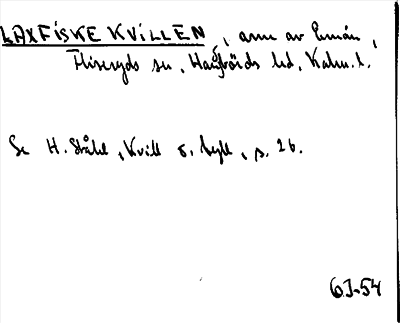 LAXFISKE KVILLEN, arm av Emån,
Fliseryds sn, Handbörds hd, Kalm. l.
Se H. Ståhl, Kvill o. tyll, s. 26.
6J-54